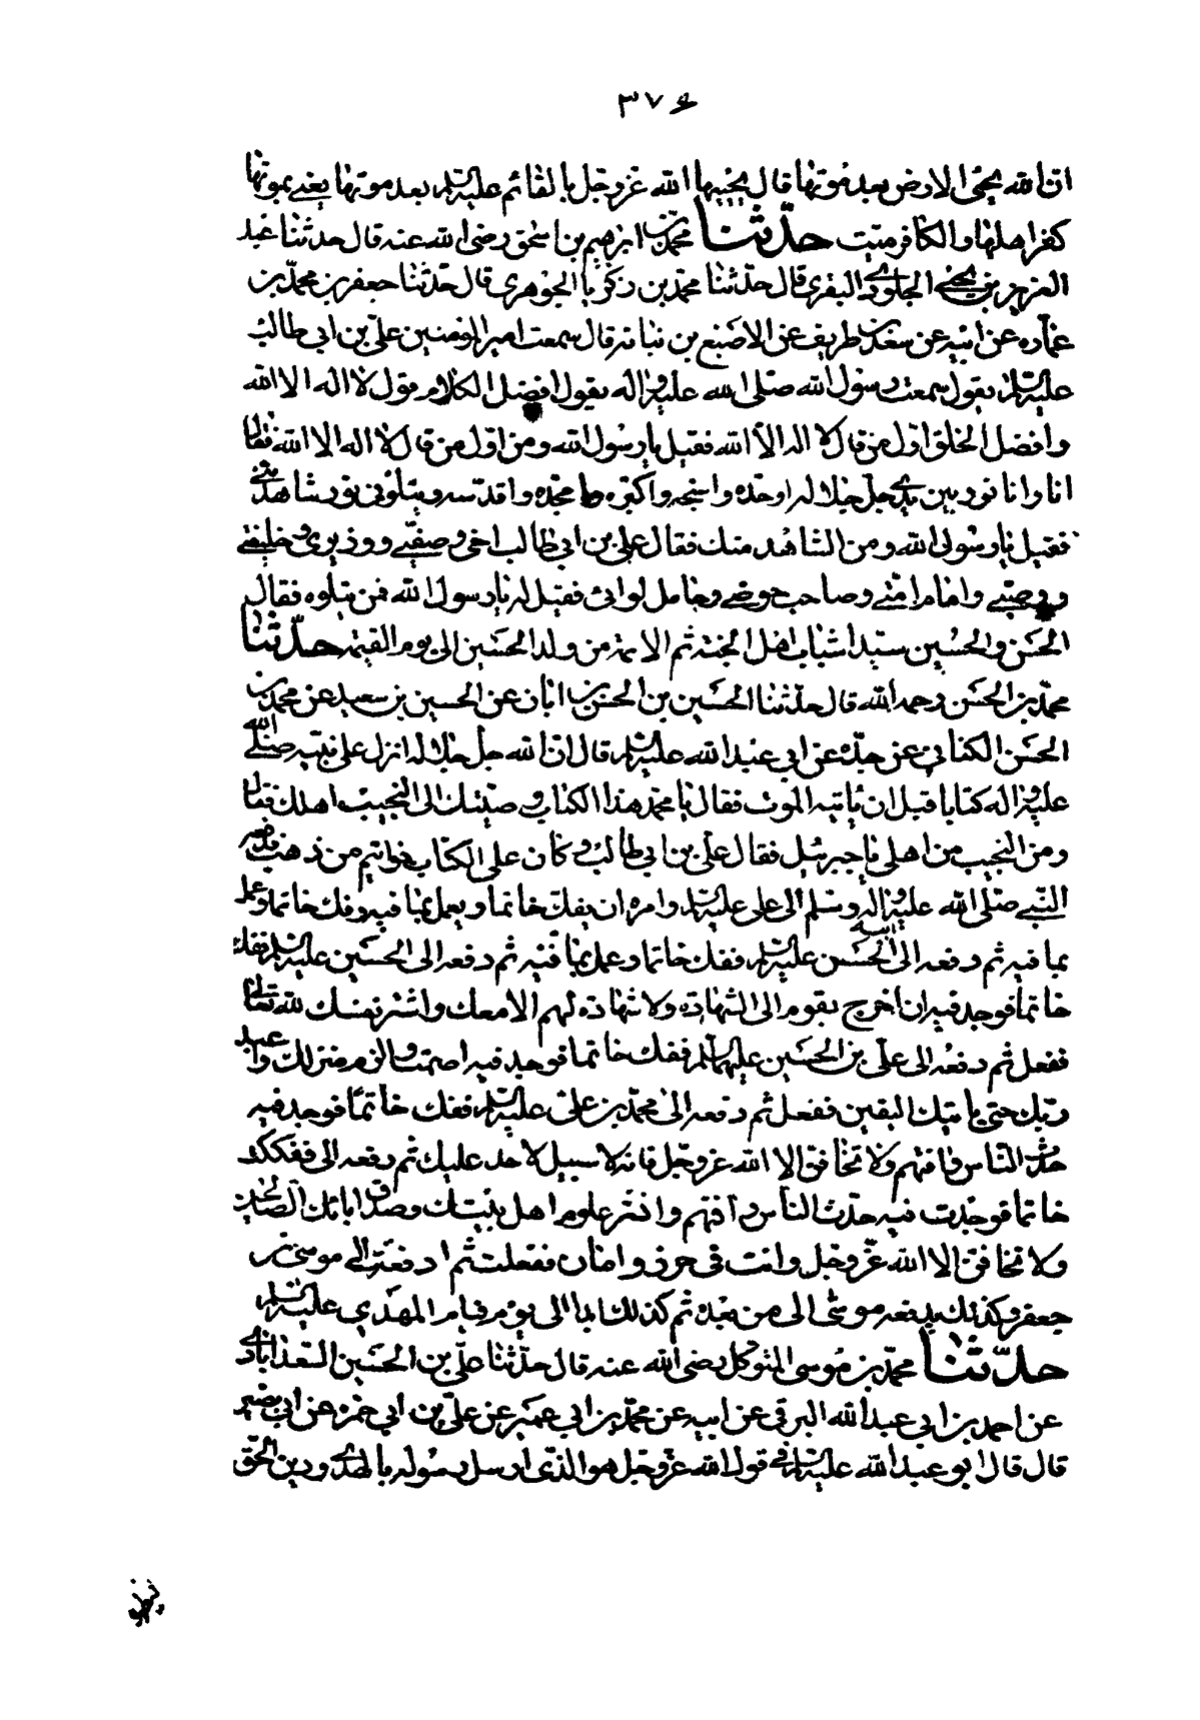 ٣٧۶
ان الله يحيى الارض بعد موتها قال يحييها الله عز و جل بالقائم عليه السلم بعد موتها يعنى بموتها
كفر اهلها والكافر ميت حدثنا محمد بن ابرهيم بن اسحق رضى الله عنه قال حدثنا عبد
العزيز بن يحيى الجلودى البصرى قال حدثنا محمد بن زكريا الجوهرى قال حدثنا جعفر بن محمد بن
عماره عن ابيه عن سعد بن طريف عن الاصبغ بن نباته قال سمعت امير المؤمنين على بن ابى طالب
عليه السلم يقول سمعت رسول الله صلى الله عليه واله يقول افضل الكلام قول لا اله الا الله
وافضل الخلق اول من قال لا اله الا الله فقيل يا رسول الله ومن اول من قال لا اله الا الله فقال
انا وانا نور بين يدى جل جلاله اوحده واسبحه واكبره و امجده واقدسه ويتلونى نور شاهد منى
فقيل يا رسول الله ومن الشاهد منك فقال على بن ابى طالب اخى وصفيى ووزيرى وخليفتى
ووصيى وامام امتى وصاحب حوضى وحامل لوائى فقيل له يا رسول الله فمن يتلوه فقال
الحسن والحسين سيدا شباب اهل الجنة ثم الائمة من ولد الحسين الى يوم القيمة حدثنا
محمد بن الحسن رحمه الله قال حدثنا الحسين بن الحسن بن ابان عن الحسين بن سعيد عن محمد بن
الحسن الكنانى عن جده عن ابى عبد الله عليه السلم قال ان الله جل جلاله انزل على نبيه صلى الله
عليه واله كتابا قبل ان ياتيه الموت فقال يا محمد هذا الكتاب وصيتك الى النجيب من اهلك فقال
ومن النجيب من اهلى يا جبرئيل فقال على بن ابى طالب وكان على الكتاب خواتيم من ذهب فدفعه
النبى صلى الله عليه واله وسلم الى على عليه السلم وامره ان يفك خاتما ويعمل بما فيه ففك خاتما وعمل
بما فيه ثم دفعه الى ابنه الحسن عليه السلم ففك خاتما وعمل بما فيه ثم دفعه الى الحسين عليه السلم ففك
خاتما فوجد فيه ان اخرج بقوم الى الشهادة ولا شهادة لهم الا معك واشتر نفسك لله تعالى
ففعل ثم دفعه الى على بن الحسين عليهما السلم ففك خاتما فوجد فيه اصمت والزم منزلك واعبد
ربك حتى ياتيك اليقين ففعل ثم دفعه الى محمد بن على عليه السلم ففك خاتما فوجد فيه
حدث الناس وافتهم ولا تخافن الا الله عز وجل فانه لا سبيل لاحد عليك ثم دفعه الى ففككت
خاتما فوجدت فيه حدث الناس وافتهم وانشر علوم اهل بيتك وصدق ابائك الصالحين
ولا تخافن الا الله عز وجل وانت فى حرز وامان ففعلت ثم ادفعه الى موسى بن
جعفر وكذلك يدفعه موسى الى من بعده ثم كذلك ابدا الى يوم قيام المهدي عليه السلم
حدثنا محمد بن موسى المتوكل رضى الله عنه قال حدثنا على بن الحسين السعدابادى
عن احمد بن ابى عبد الله البرقى عن ابيه عن محمد بن ابى عمير عن على بن ابى حمزه عن ابى بصير
قال قال ابو عبد الله عليه السلم فى قول الله عز وجل هو الذى ارسل رسوله بالهدى ودين الحق